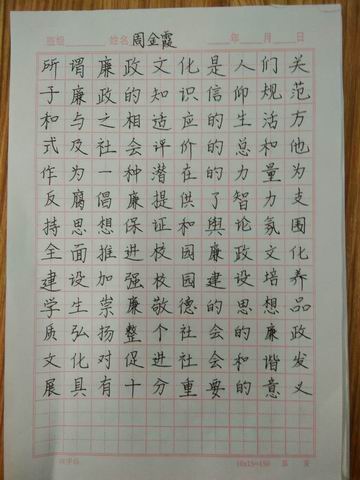 班级 姓名 周金霞 年 月 日
所谓廉政文化是人们关
于廉政的知识信仰规范
和与之相适应的生活方
式及社会评价的总和他
作为一种潜在的力量为
反腐倡廉提供了智力支
持思想保证和舆论氛围
全面推进校园廉政文化
建设加强校园建设培养
学生崇廉敬德的思想品
质弘扬整个社会的廉政
文化对促进社会和谐发
展具有十分重要的意义
10x15=150 第 页